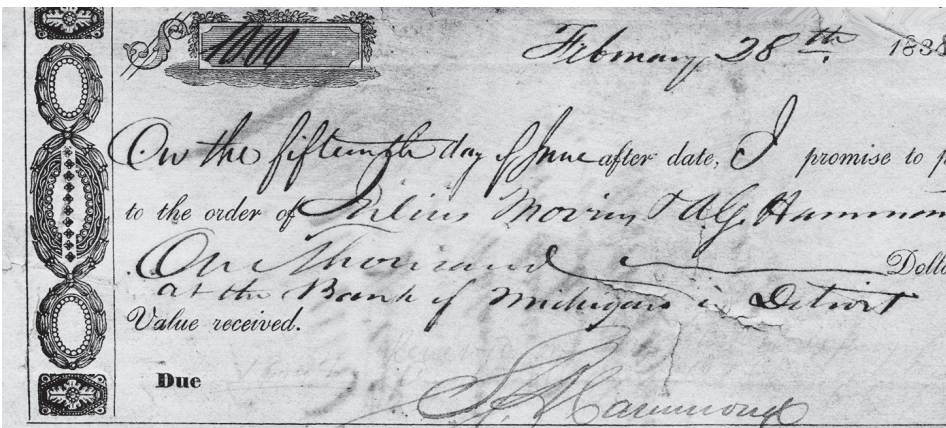 1000
February 28th. 1838
On the fifteenth day of June after date, I promise to p
to the order of Julius Movius & A.G. Hammon
One Thousand Dolla
at the Bank of Michigan in Detroit
Value received.
Due
Hammond